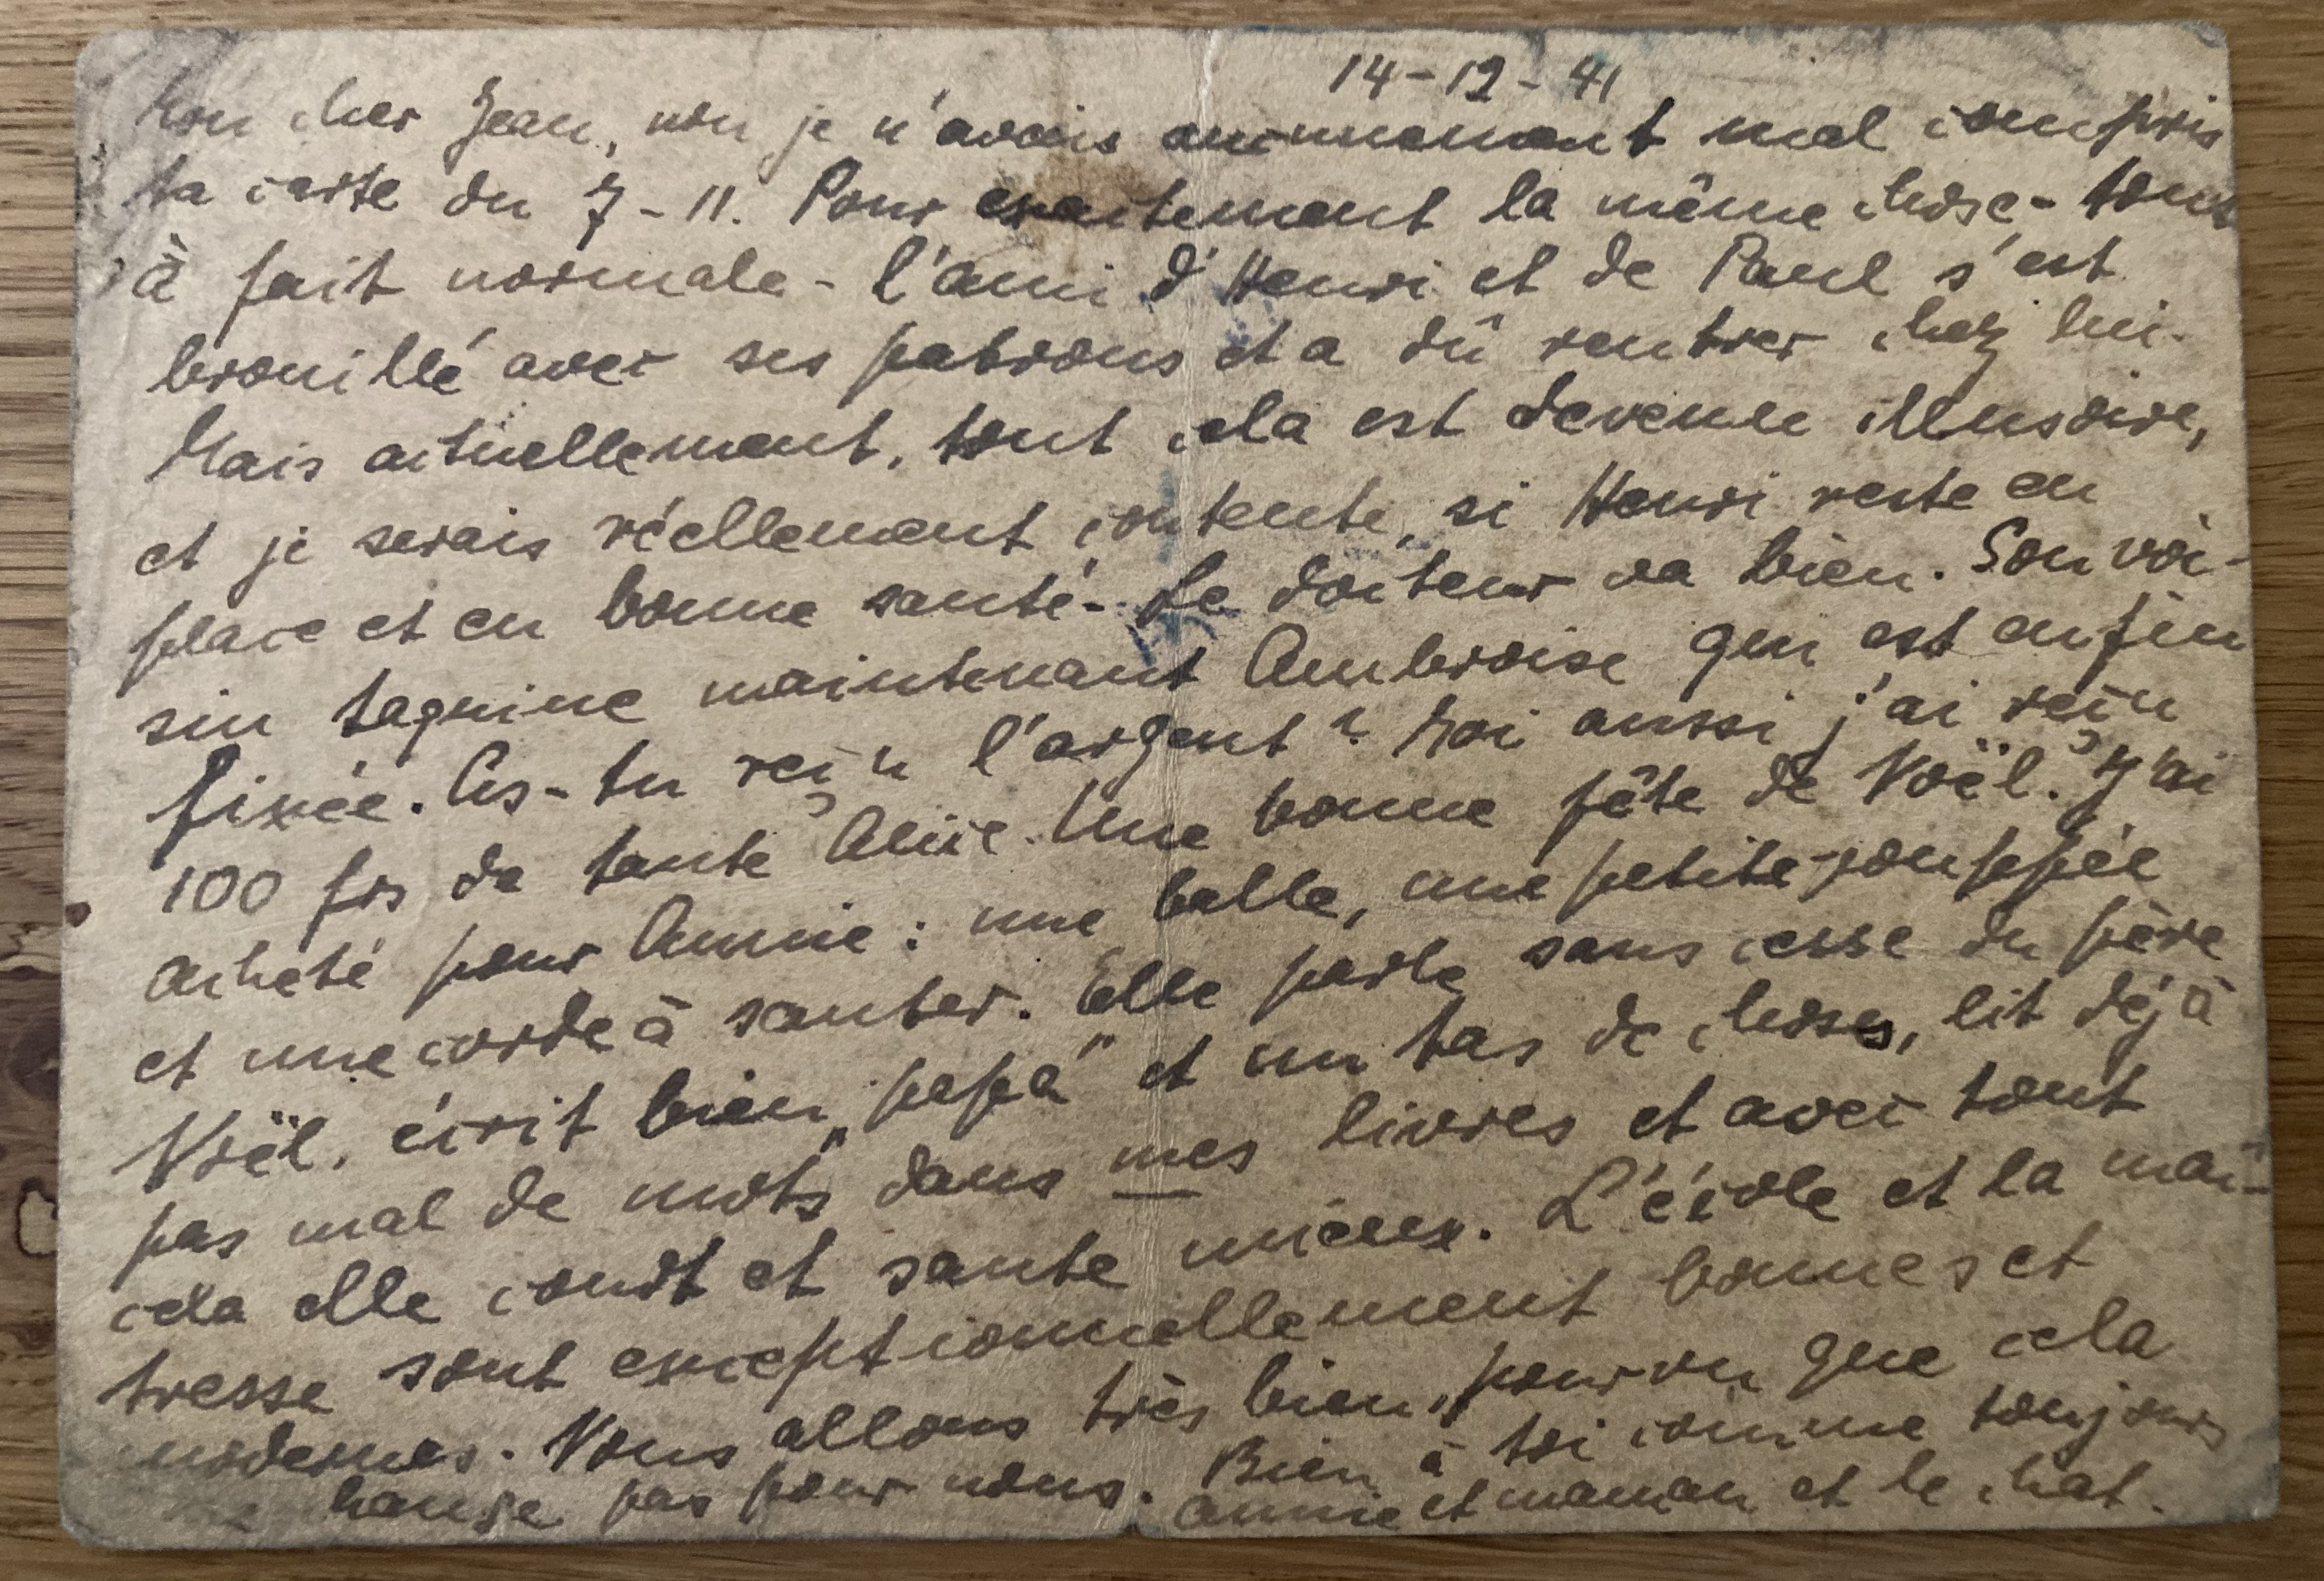 14-12-41
Mon cher Jean, non je n'avais aucunement mal compris
ta carte du 7-11. Pour exactement la même chose - tout
à fait normale - l'ami d'Henri et de Paul s'est
brouillé avec ses patrons et a dû rentrer chez lui.
Mais actuellement, tout cela est devenu illusoire,
et je serais réellement contente, si Henri reste en
place et en bonne santé - Le docteur va bien. Son voi-
sin taquine maintenant Ambroise qui est enfin
fixée. As-tu reçu l'argent? Moi aussi j'ai reçu
100 frs de tante Alice. Une bonne fête de Noël. J'ai
acheté pour Annie: une balle, une petite pouppée
et une corde à sauter. Elle parle sans cesse du père
Noël, écrit bien „papa" et un tas de choses, lit déjà
pas mal de mots dans mes livres et avec tout
cela elle coudt et saute mieux. L'école et la maî-
tresse sont exceptionnellement bonnes et
modernes. Nous allons très bien, pourvu que cela
change pas pour nous. Bien à toi comme toujours
Annie et maman et le chat.